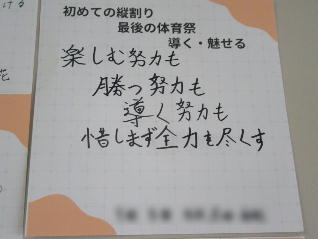 ける
初めての縦割り
最後の体育祭
導く・魅せる
楽しむ努力も
勝つ努力も
導く努力も
惜しまず全力を尽くす
花